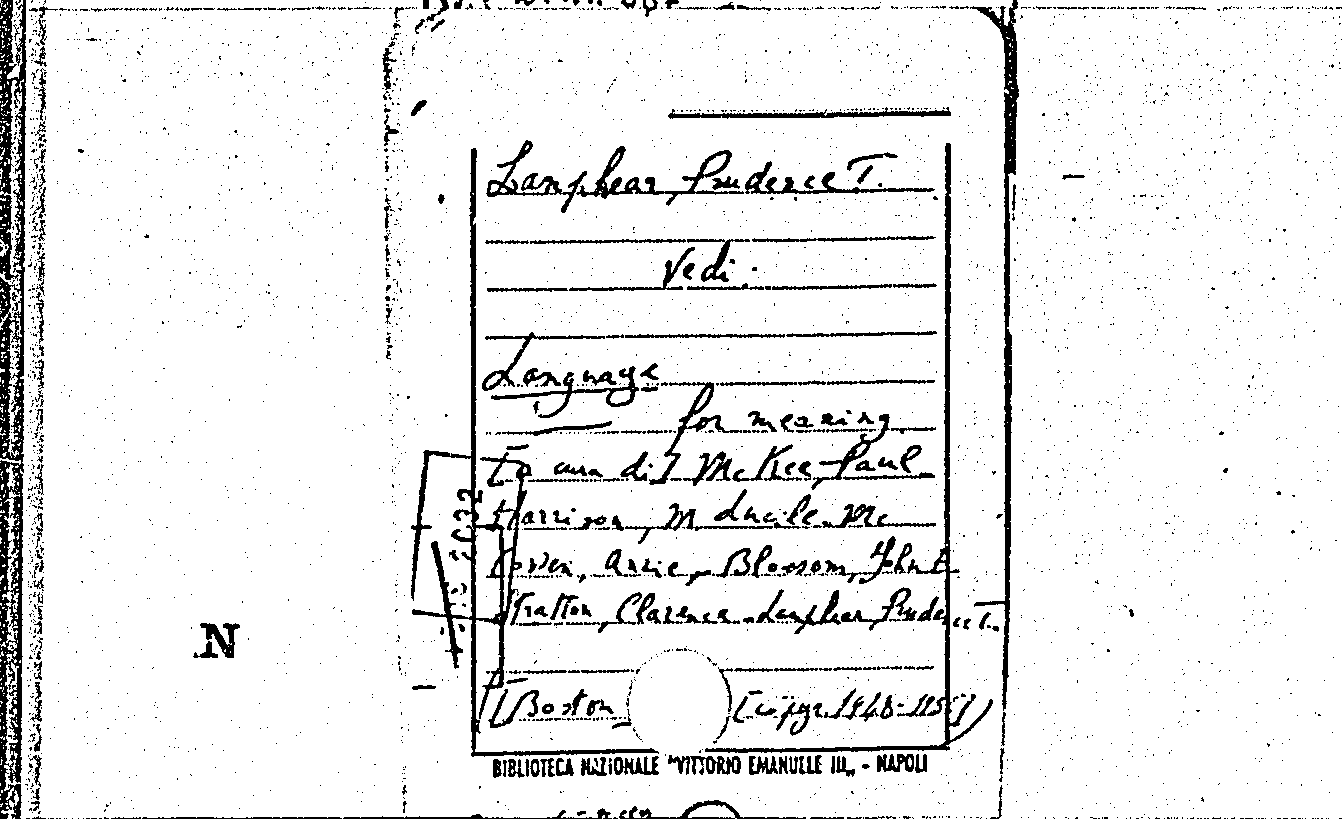 Lanphear, Prudence T.
Vedi:
Language
for meaning
[a cura di] McKee, Paul
Harrison, M. Lucile - Mc
Cowen, Annie, - Blossom, John E.
Stratton, Clarence - Lanphear, Prudence T.
(Boston [copyr. 1948-195
BIBLIOTECA NAZIONALE "VITTORIO EMANUELE III„ - NAPOLI
N